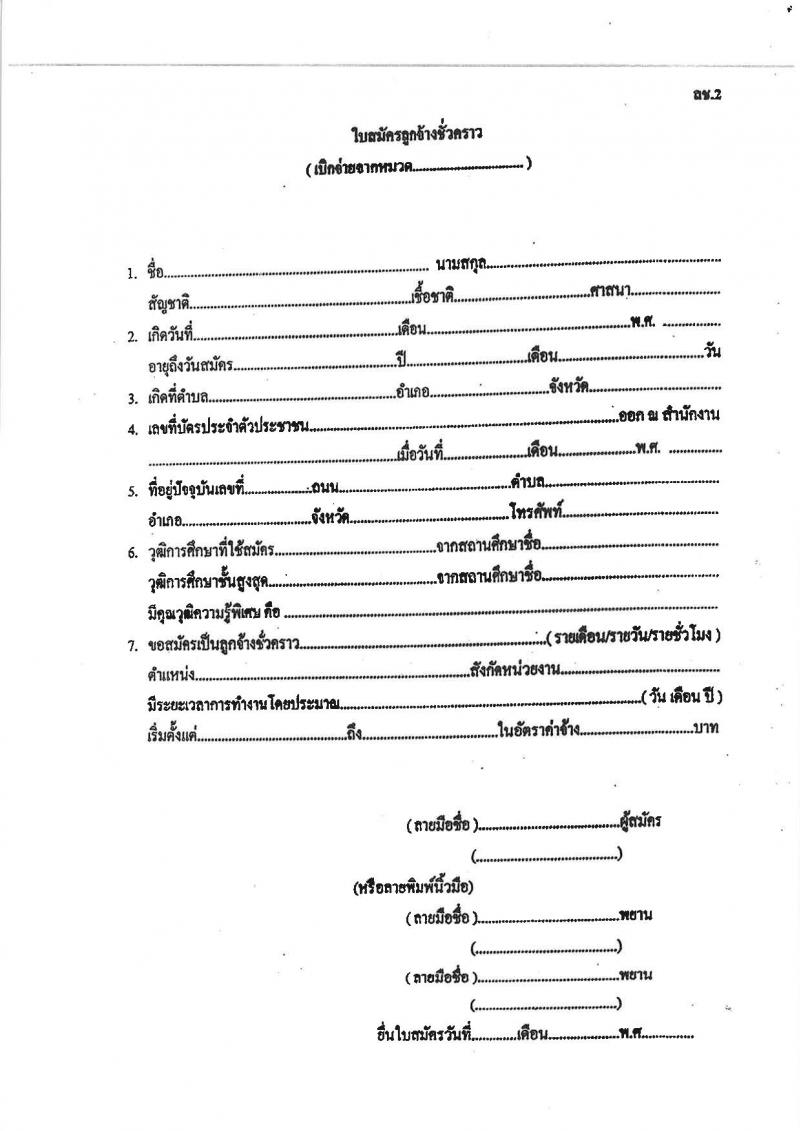 ลช.2
ใบสมัครลูกจ้างชั่วคราว
( เบิกจ่ายจากหมวด.............................. )
1. ชื่อ...................................................................... นามสกุล..............................................................
สัญชาติ...........................................................เชื้อชาติ....................................ศาสนา........................
2. เกิดวันที่......................................................เดือน......................................................พ.ศ. ...............
อายุถึงวันสมัคร...........................................ปี................................เดือน.......................................วัน
3. เกิดที่ตำบล..................................................อำเภอ................................จังหวัด...................................
4. เลขที่บัตรประจำตัวประชาชน..................................................................................ออก ณ สำนักงาน
..................................................................เมื่อวันที่......................เดือน.....................พ.ศ. ..............
5. ที่อยู่ปัจจุบันเลขที่..................ถนน..............................................ตำบล...............................................
อำเภอ..................................จังหวัด...........................................โทรศัพท์.........................................
6. วุฒิการศึกษาที่ใช้สมัคร...........................................จากสถานศึกษาชื่อ...............................................
วุฒิการศึกษาชั้นสูงสุด.............................................จากสถานศึกษาชื่อ...............................................
มีคุณวุฒิความรู้พิเศษ คือ ....................................................................................................................
7. ขอสมัครเป็นลูกจ้างชั่วคราว.................................................................( รายเดือน/รายวัน/รายชั่วโมง )
ตำแหน่ง.........................................................................สังกัดหน่วยงาน...........................................
มีระยะเวลาการทำงานโดยประมาณ................................................................................( วัน เดือน ปี )
เริ่มตั้งแต่........................................ถึง....................................ในอัตราค่าจ้าง..............................บาท
( ลายมือชื่อ ).....................................ผู้สมัคร
(.....................................)
(หรือลายพิมพ์นิ้วมือ)
( ลายมือชื่อ ).....................................พยาน
(.....................................)
( ลายมือชื่อ ).....................................พยาน
(.....................................)
ยื่นใบสมัครวันที่............เดือน...................พ.ศ..............